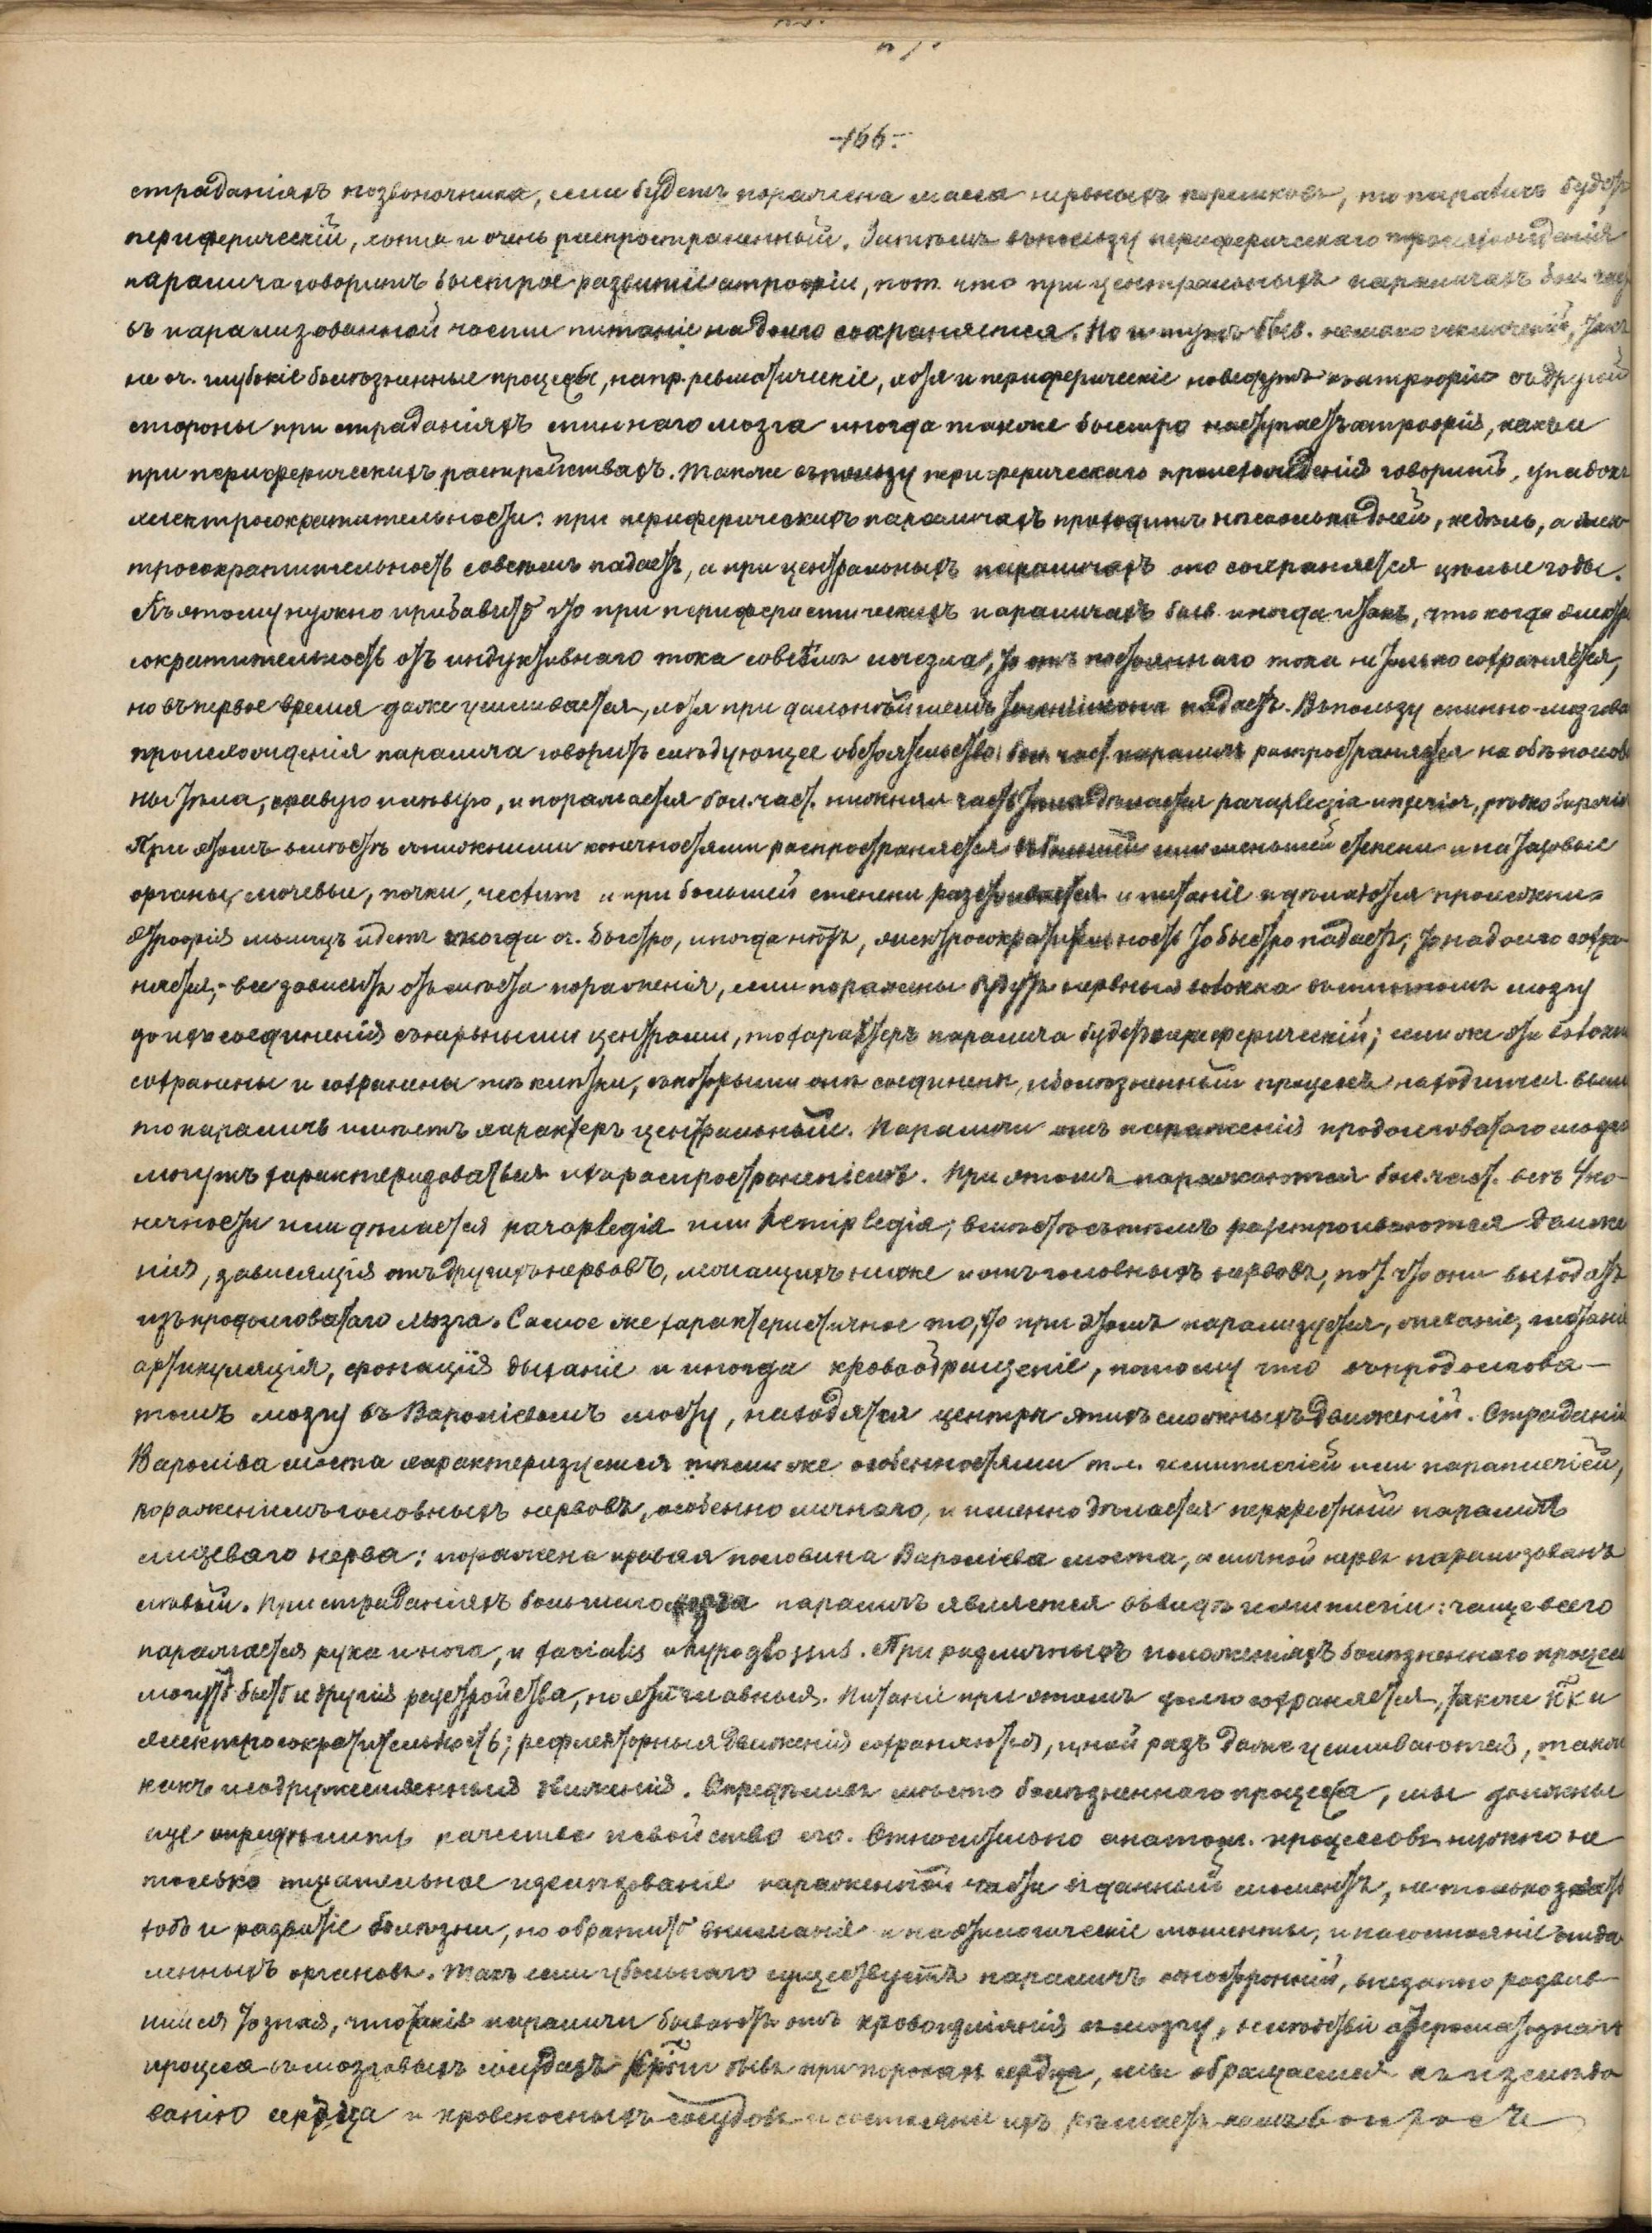 -166-
страданіяхъ позвоночника, если будетъ поражена масса нервныхъ корешковъ, то параличъ будетъ
периферическій, хотя и очень распространенный. Затѣмъ въ пользу периферическаго происхожденія
паралича говоритъ быстрое развитіе атрофіи, пот. что при центральныхъ параличахъ бол. час
въ парализованной части питаніе надолго сохраняется. Но и тутъ быв. немало исключеній,
не оч. глубокіе болѣзненные процессы, напр. ревматическіе, хотя и периферическіе не ведутъ къ атрофіи съ другой
стороны при страданіяхъ спиннаго мозга иногда также быстро наступаетъ атрофія, какъ и
при периферическихъ разстройствахъ. Также въ пользу периферическаго происхожденія говоритъ, упадокъ
электросократительности: при периферическихъ параличахъ проходитъ нѣсколько дней, недѣль, а элек
тросократительность совсѣмъ падаетъ, а при центральныхъ параличахъ она сохраняется цѣлые годы.
Къ этому нужно прибавить что при периферистическихъ параличахъ быв. иногда и такъ, что когда электр
сократительность отъ индуктивнаго тока совсѣмъ исчезла, то отъ постояннаго тока не только сохраняется,
но въ первое время даже усиливается, хотя при дальнѣйшемъ падаетъ. Въ пользу спинно-мозгова
происхожденія паралича говоритъ слѣдующее обстоятельство: бол. част. параличъ распространяется на обѣ полов
ны тѣла, правую и лѣвую, и поражается бол. част. нижняя часть тѣла дѣлается paraplegia inferior, рѣдко superior
При этомъ вмѣстѣ съ нижними конечностями распространяется въ большей или меньшей степени и на тазовые
органы, мочевые, почки, rectum и при большей степени разстраивается и питаніе и дѣлаются пролежни
Атрофія мышцъ идетъ иногда оч. быстро, иногда нѣтъ, электросократительность то быстро падаетъ, то надолго сохра-
няется, - все зависитъ отъ мѣста пораженія, если поражены будутъ нервныя волокна въ спинномъ мозгу
до ихъ соединенія съ нервными центрами, то характеръ паралича будетъ периферическій; если же эти волокна
сохранены и сохранены тѣ клѣтки, съ которыми они соединены, и болѣзненный процессъ находится выше
то параличъ имѣетъ характеръ центральный. Параличи отъ пораженія продолговатаго мозга
могутъ характеризоваться и ихъ распространеніемъ. При этомъ поражаются бол. част. всѣ 4 ко-
нечности или дѣлается paraplegia или hemiplegia; вмѣстѣ съ тѣмъ разстроиваются движе
нія, зависящія отъ другихъ нервовъ, лежащихъ ниже и отъ головныхъ нервовъ, пот. что они выходятъ
изъ продолговатаго мозга. Самое же характеристичное то, что при этомъ парализуется, жеваніе, глотаніе
артикуляція, фонація дыханіе и иногда кровообращеніе, потому что въ продолгова-
томъ мозгу въ Вароліевомъ мосту, находятся центры этихъ сложныхъ движеній. Страданія
Вароліева моста характеризуются тѣми же особенностями т.е. гемиплегіей или параплегіей,
пораженіемъ головныхъ нервовъ, особенно личнаго, и именно дѣлается перекрестный параличъ
лицеваго нерва: поражена правая половина Вароліева моста, а личной нервъ парализованъ
лѣвый. При страданіяхъ большаго мозга параличъ является въ видѣ гемиплегіи: чаще всего
поражается рука и нога, и facialis и hypoglossus. При различныхъ положеніяхъ болѣзненнаго процесса
могутъ быть и другія разстройства, но эти главныя. Питаніе при этомъ долго сохраняется, также к͞к и
электросократительность; рефлекторныя движенія сохраняются, иной разъ даже усиливаются, также
какъ и содружественныя движенія. Опредѣливъ мѣсто болѣзненнаго процесса, мы должны
еще опредѣлить качество и свойство его. Относительно анатом. процессовъ нужно не
только тщательное изслѣдованіе пораженной части въ данный моментъ, не только знать
ходъ и развитіе болѣзни, но обратить вниманіе и на этіологическіе моменты, и на состояніе отда
ленныхъ органовъ. Такъ если у больнаго существуетъ параличъ односторонній, внезапно развив-
шійся то зная, что такіе параличи бываютъ отъ кровоизліянія въ мозгу, вслѣдствіи атероматознаго
процеса въ мозговыхъ сосудахъ быв. при порокахъ сердца, мы обращаемся къ изслѣдо
ванію сердца и кровеносныхъ сосудовъ и состояніе ихъ рѣшаетъ намъ вопросъ